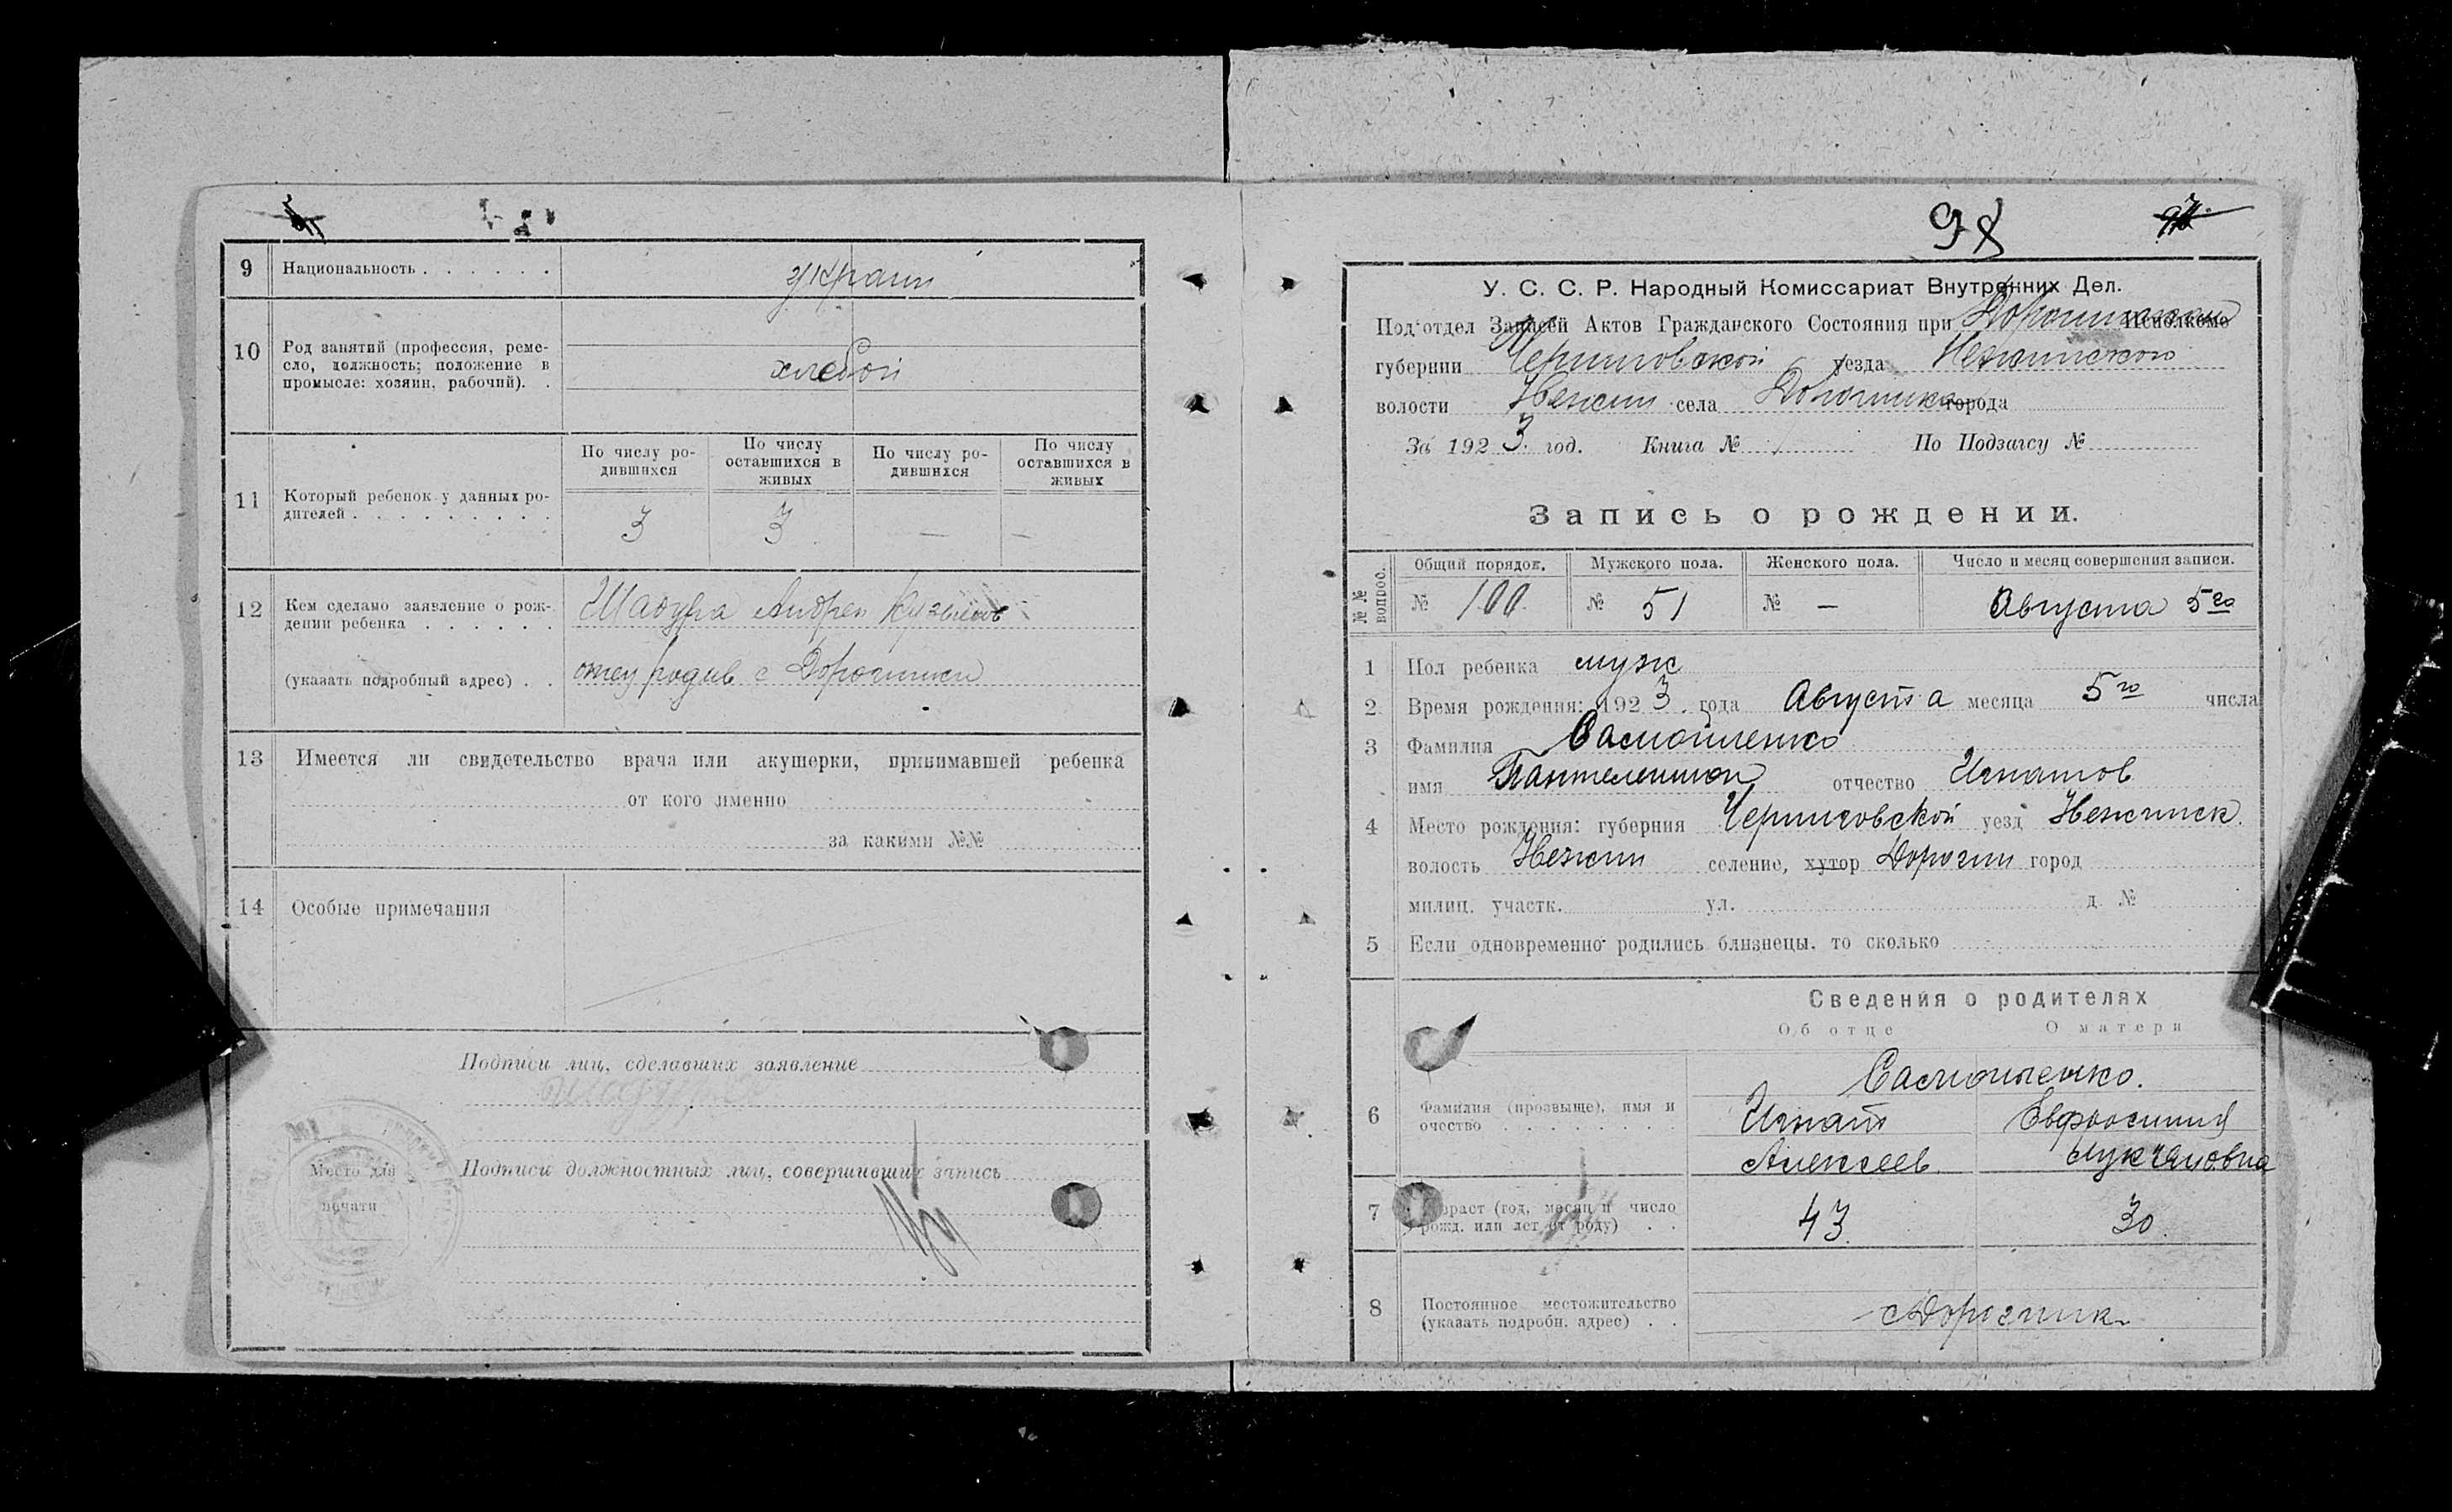 9 Национальность . . . . . . украин
10 Род занятий (профессия, реме-
сло, должность; положение в
промысле: хозяин, рабочий). . хлебой
По числу ро-
дившихся
По числу
оставшихся в
живых
По числу ро-
дившихся
По числу
оставшихся в
живых
11 Который ребенок у данных ро-
дителей . . . . . . . . .
3 3 — —
12 Кем сделано заявление о рож-
дении ребенка . . . . . . Шадура Андрей Кузьмов
(указать подробный адрес) . . отец с Дорогинки
13 Имеется ли свидетельство врача или акушерки, принимавшей ребенка
от кого именно
за какими №№
14 Особые примечания
Подписи лиц, сделавших заявление
Подписи должностных лиц, совершивших запись
Место для
печати
98 97
У. С. С. Р. Народный Комиссариат Внутренних Дел.
Под‘отдел Записей Актов Гражданского Состояния при Исполкоме
губернии Черниговской уезда Нежинского
волости Нежин села Дорогинка города
За 1923 год. Книга № По Подзагсу №
Запись о рождении.
№№ вопрос.
Общий порядок. Мужского пола. Женского пола. Число и месяц совершения записи.
№ 100 № 51 № — Августа 5го
1 Пол ребенка муж
2 Время рождения: 1923 года Августа месяца 5го числа
3 Фамилия Самойленко
имя Пантелеимон отчество Игнатов
4 Место рождения: губерния Черниговской уезд Нежинск.
волость Нежин селение, хутор Дорогин город
милиц. участк. ул. д. №
5 Если одновременно родились близнецы, то сколько
Сведения о родителях
Об отце О матери
Самойленко.
6 Фамилия (прозвыще), имя и
очество . . . . . . . .
Игнат Евфросиния
Алексеев Лукчановна
7 Возраст (год, месяц и число
рожд. или лет от роду) . . 43 30
8 Постоянное местожительство
(указать подробн. адрес) . . с Дорогинк